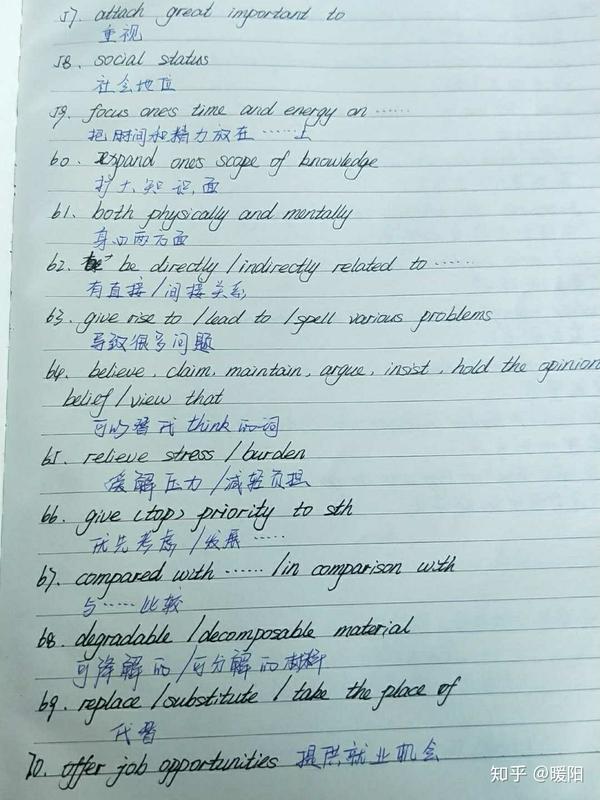 57. attach great important to
重视
58. social status
社会地位
59. focus one's time and energy on ……
把时间和精力放在……上
60. expand one's scope of knowledge
扩大知识面
61. both physically and mentally
身心两方面
62. be directly / indirectly related to ……
有直接/间接关系
63. give rise to / lead to / spell various problems
导致很多问题
64. believe, claim, maintain, argue, insist, hold the opinion
belief / view that
可以替代 think 的词
65. relieve stress / burden
缓解压力/减轻负担
66. give (top) priority to sth
优先考虑/发展……
67. compared with …… / in comparison with
与……比较
68. degradable / decomposable material
可降解的/可分解的材料
69. replace / substitute / take the place of
代替
70. offer job opportunities 提供就业机会
知乎 @暖阳